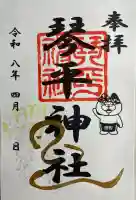 奉拝
琴平神社
令和八年四月 日